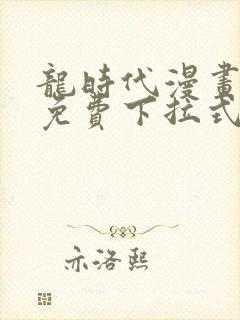 龍時代漫畫
免費下拉式
亦洛熙